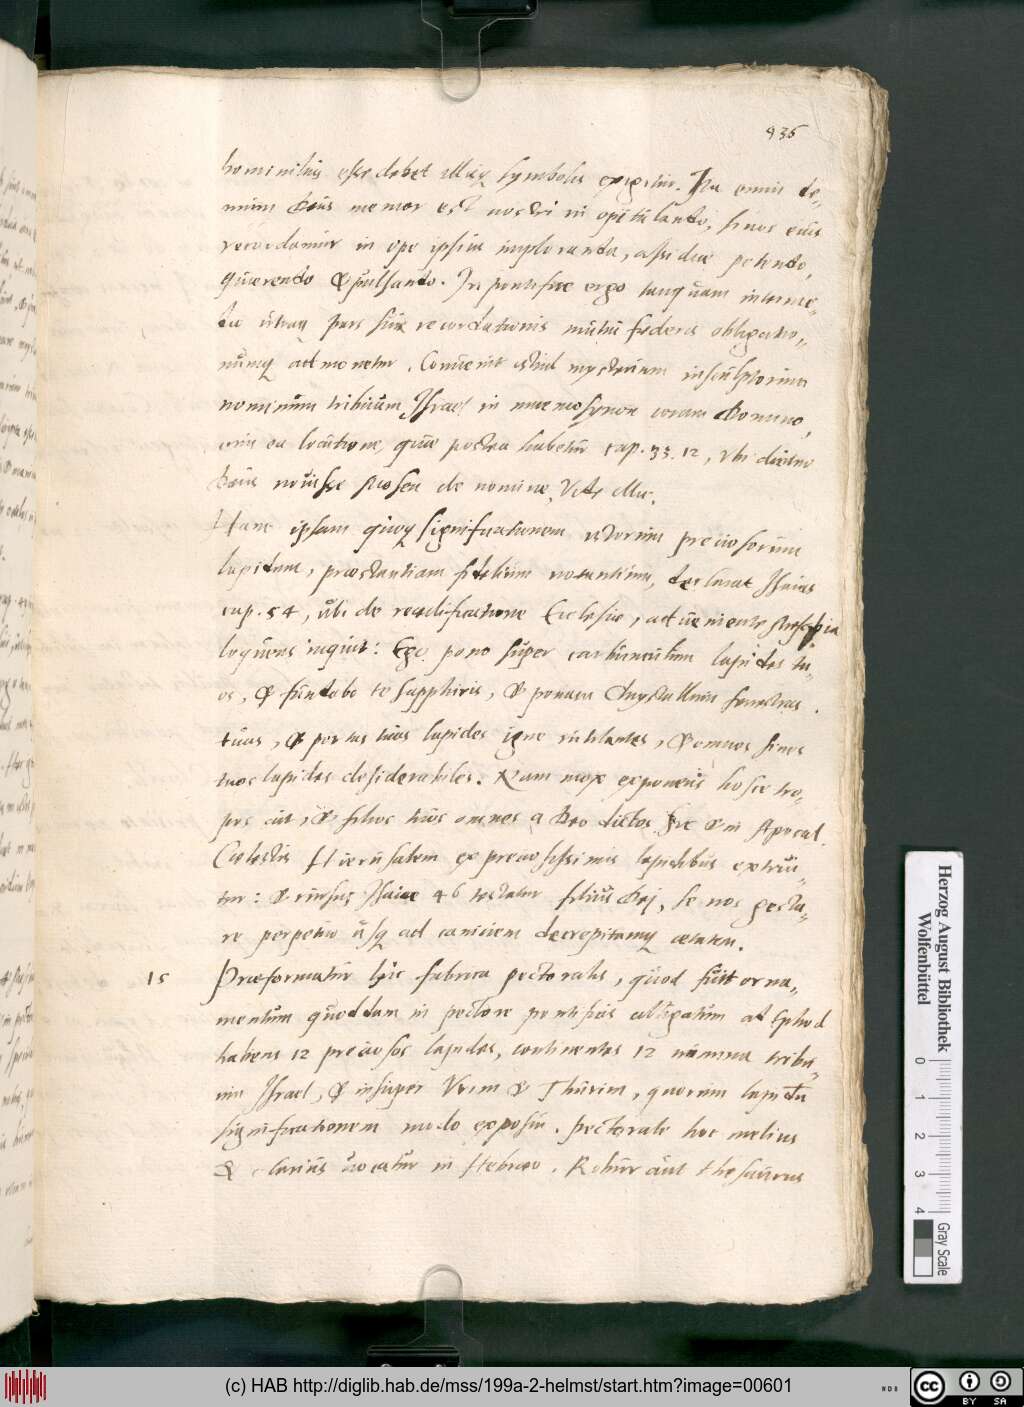 936
hominibus esse debet illisq symbolis exigitur. Ita enim de-
mum Deus memor est nostri in opitulando, si nos eius
recordamur in ope ipsius imploranda, assidue petendo,
quaerendo & pulsando. In pontifice ergo tanquam interme-
dia utraq pars suae recordationis mutui foederis obligatio-
numq admonetur. Convenit istud mysterium insculptorum
nominum tribuum Israel in mnemosynon coram Domino,
cum ea locutione, quae postea habetur cap. 33. 12, ubi dicitur
Deus novisse Mosen de nomine, Vide illic.
Hanc ipsam quoq significationem istorum preciosorum
lapidum, praestantiam fidelium notantium, declarat Isaias
cap. 54, ubi de reaedificatione Ecclesiae, adveniente Messia
loquens inquit: Ego pono super carbunculum lapides tu-
os, & fundabo te sapphiris, & ponam Chrystallinas fenestras
tuas, & portas tuas lapides igne rutilantes, & omnes fines
tuos lapides desiderabiles. Nam mox exponens hosce tro-
pos ait, & filios tuos omnes a Deo dictos. Sic & in Apocal.
Coelestis Hierusalem ex preciosissimis lapidibus extrui-
tur: & rursus Isaiae 46 testatur filius Dej, se nos gesta-
re perpetuo usq ad caniciem decrepitamq aetatem.
15 Praeformatur hic fabrica pectoralis, quod fuit orna-
mentum quoddam in pectore pontificis alligatum ad Ephod
habens 12 preciosos lapides, continentes 12 nomina tribu-
um Israel, & insuper Urim & Thumim, quorum lapidu
significationem modo exposui. Pectorale hoc melius
& clarius vocatur in Hebraeo. Robur aut thesaurus
Herzog August Bibliothek
Wolfenbüttel
0 1 2 3 4
Gray Scale
(c) HAB http://diglib.hab.de/mss/199a-2-helmst/start.htm?image=00601
cc BY SA